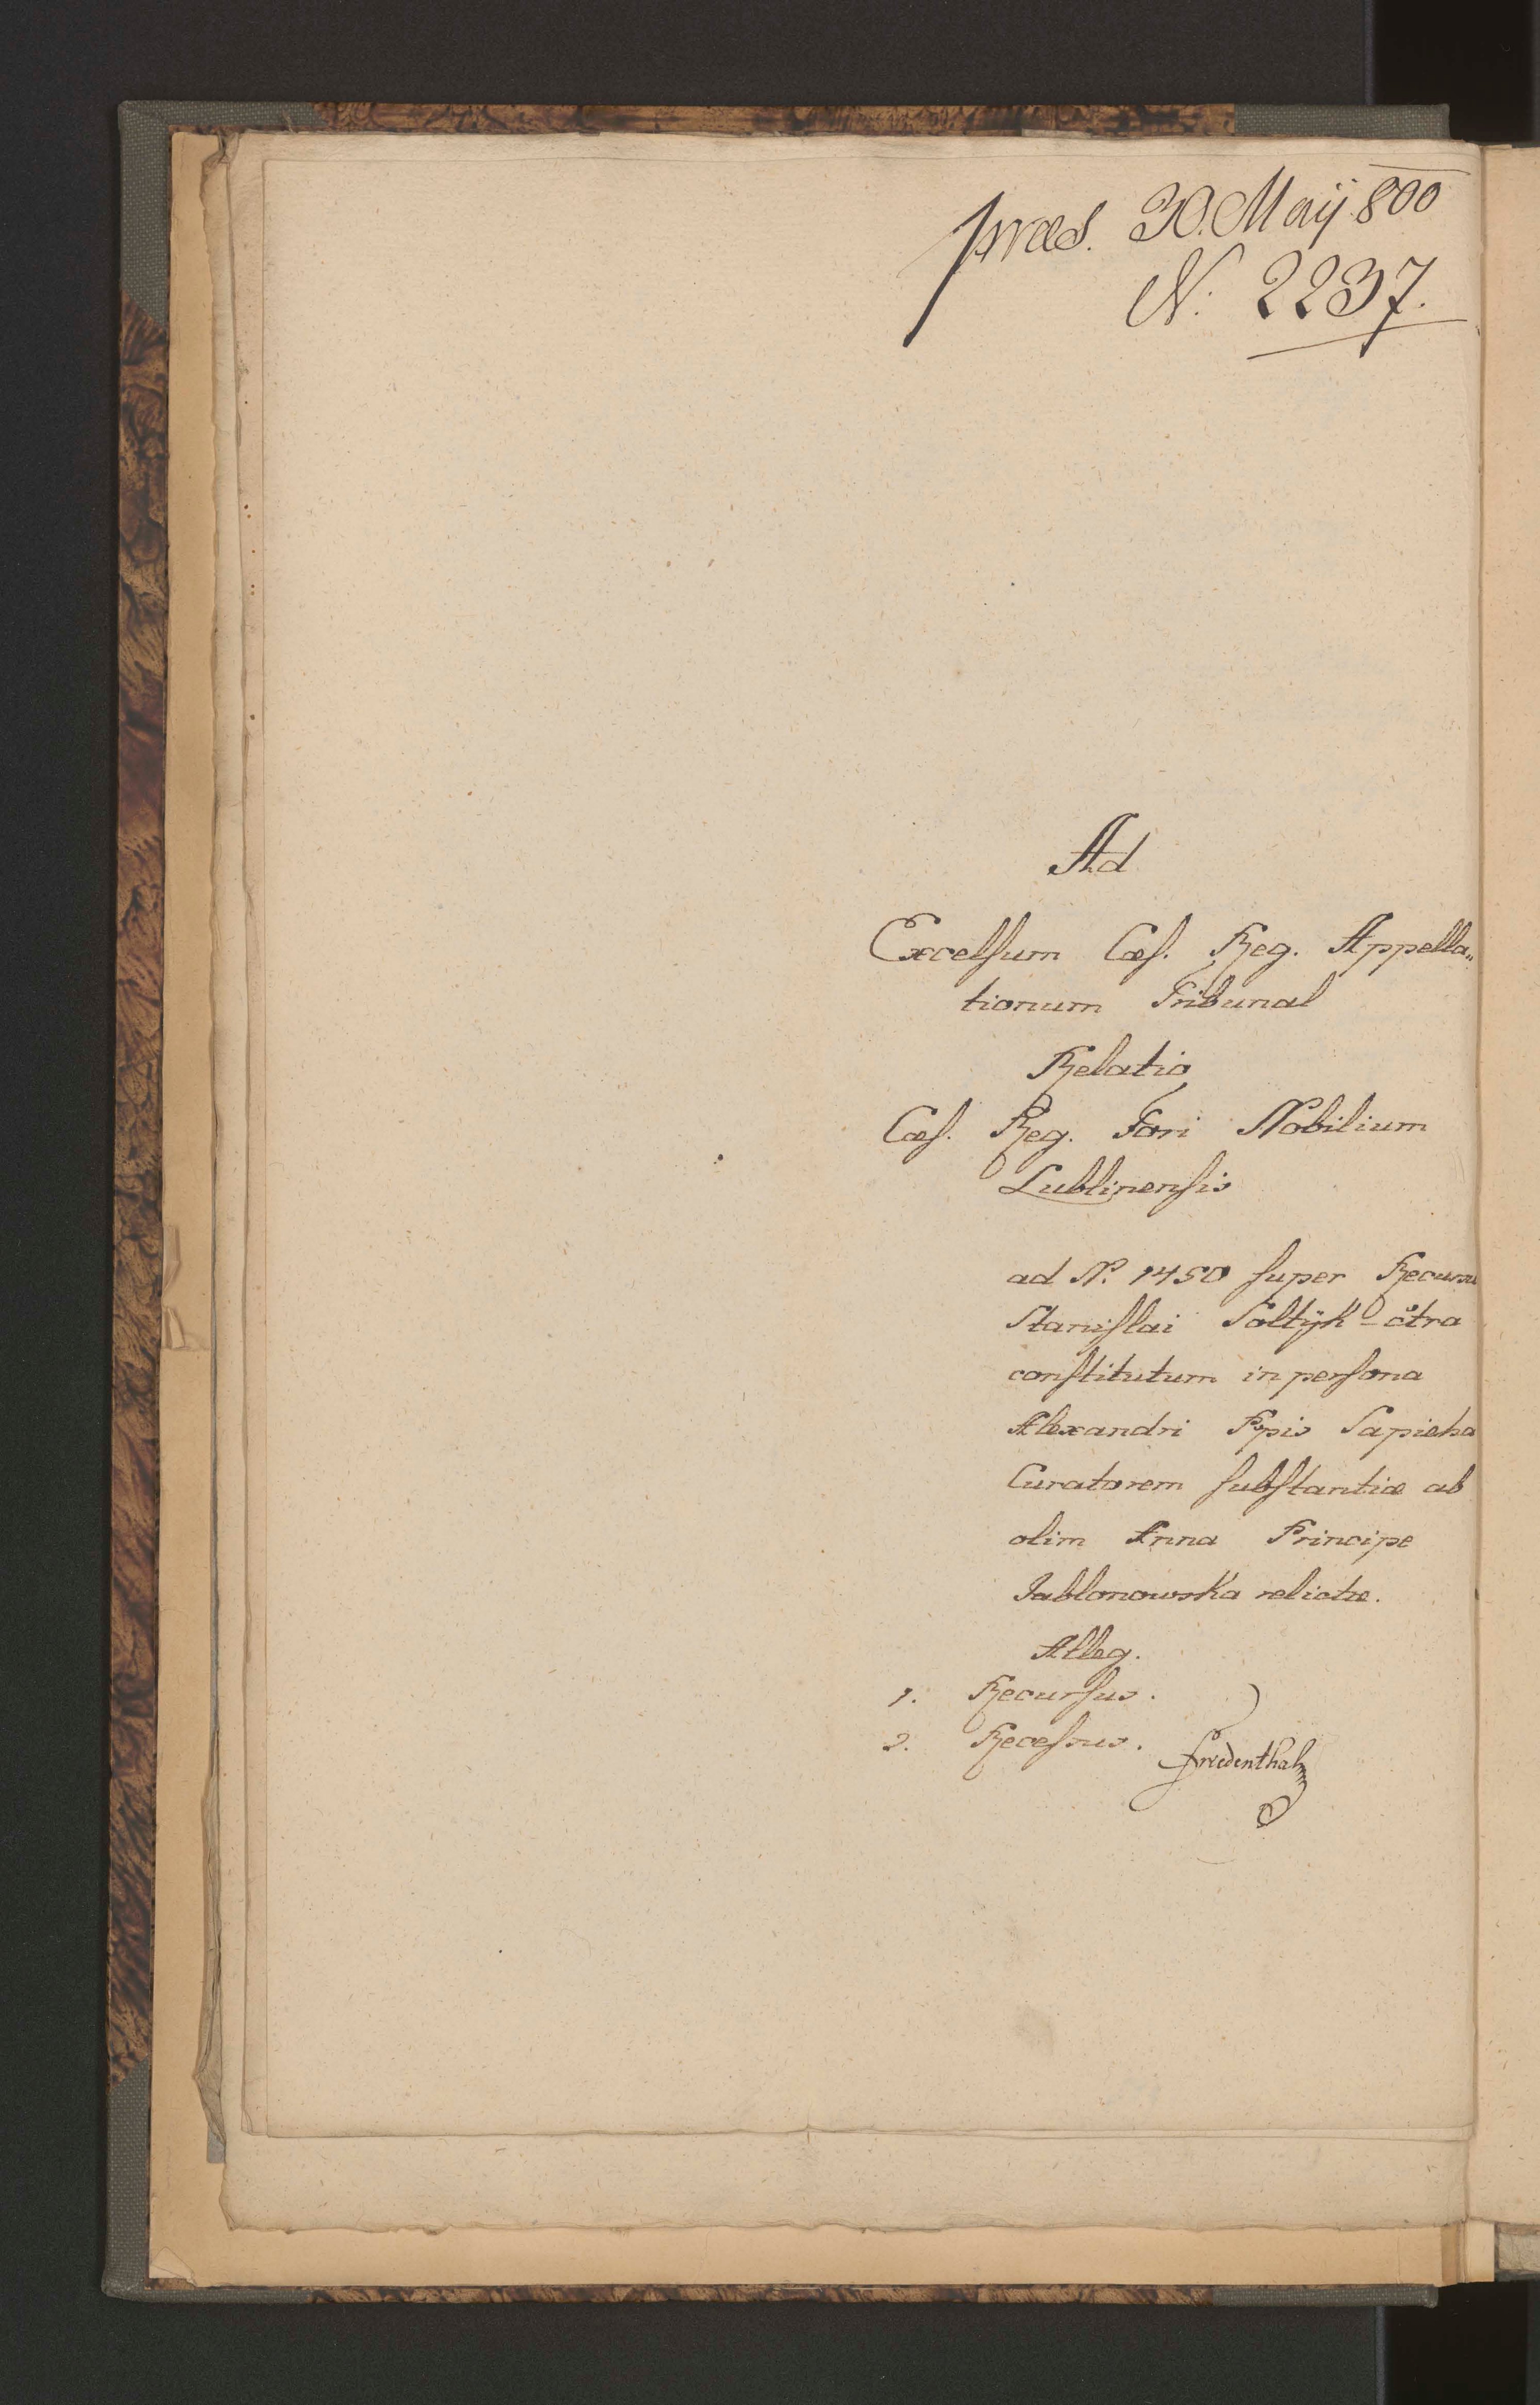 præs. 30. Maÿ 800
N. 2237.
Ad
Excelsum Cæs. Reg. Appella„
tionum Tribunal
Relatio
Cæs. Reg. Fori Nobilium
Lublinensis
ad N. 1450 super Recursu
Stanislai Soltÿk c̃tra
constitutum in persona
Alexandri Ppis Sapieha
Curatorem substantiæ ab
olim Anna Principe
Jablonowska relictæ.
Alleg.
1. Recursus.
2. Recessus.
Friedenthal